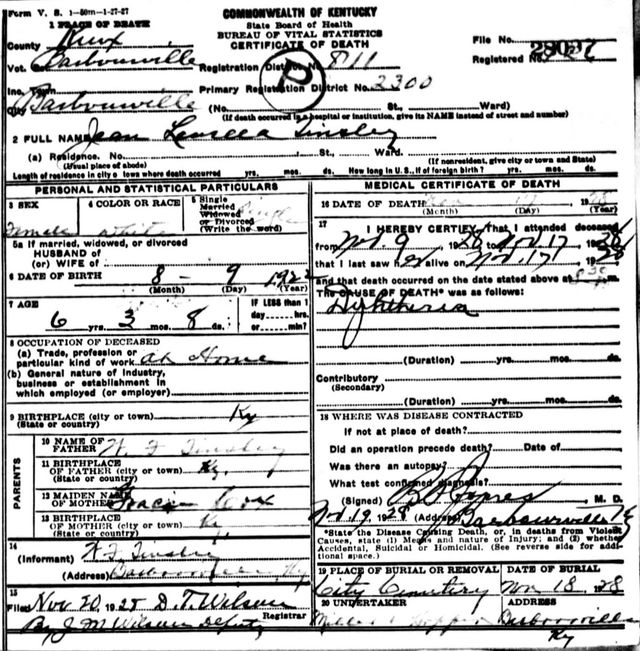 Form V. S. 1-50m-1-27-27
COMMONWEALTH OF KENTUCKY
State Board of Health
BUREAU OF VITAL STATISTICS
CERTIFICATE OF DEATH
1 PLACE OF DEATH
County Knox
File No.
Registered No.
Vot. Barbourville
Registration District No. 811
Inc. Town
Primary Registration District No. 2300
City Barbourville (No. St., Ward)
(If death occurred in a hospital or institution, give its NAME instead of street and number)
2 FULL NAME Jean Tinsley
(a) Residence. No. St., Ward.
(Usual place of abode) (If nonresident, give city or town and State)
Length of residence in city or town where death occurred yrs. mos. ds. How long in U. S., if of foreign birth? yrs. mos. ds.
PERSONAL AND STATISTICAL PARTICULARS
3 SEX
Female
4 COLOR OR RACE
white
5 Single
Married
Widowed
or Divorced
(Write the word)
Single
5a If married, widowed, or divorced
HUSBAND of
(or) WIFE of
6 DATE OF BIRTH 8 - 9 1922
(Month) (Day) (Year)
7 AGE
6 yrs. 3 mos. 8 ds.
IF LESS than 1
day hrs.
or min.?
8 OCCUPATION OF DECEASED
(a) Trade, profession or
particular kind of work at Home
(b) General nature of industry,
business or establishment in
which employed (or employer)
9 BIRTHPLACE (city or town) Ky
(State or country)
PARENTS
10 NAME OF
FATHER W. F. Tinsley
11 BIRTHPLACE
OF FATHER (city or town) Ky.
(State or country)
12 MAIDEN NAME
OF MOTHER Gracie Cox
13 BIRTHPLACE
OF MOTHER (city or town) Ky,
(State or country)
14
(Informant) W. F. Tinsley
(Address) Barbourville, Ky
15
Filed Nov 20, 1928 D. T. Wilson
Registrar
By J M Wilson Deputy
MEDICAL CERTIFICATE OF DEATH
16 DATE OF DEATH Nov 17 1928
(Month) (Day) (Year)
17
I HEREBY CERTIFY, That I attended deceased
from Nov. 9 1928 to Nov. 17 1928
that I last saw her alive on Nov. 17 1928
and that death occurred on the date stated above at
The CAUSE OF DEATH* was as follows:
Diphtheria
(Duration) yrs. mos. ds.
Contributory
(Secondary)
(Duration) yrs. mos. ds.
18 WHERE WAS DISEASE CONTRACTED
If not at place of death?
Did an operation precede death? Date of
Was there an autopsy?
What test confirmed diagnosis?
(Signed) M. D.
Nov. 19, 1928 (Address) Barbourville Ky
*State the Disease Causing Death, or, in deaths from Violent
Causes, state (1) Means and nature of Injury; and (2) whether
Accidental, Suicidal or Homicidal. (See reverse side for addi-
tional space.)
19 PLACE OF BURIAL OR REMOVAL
City Cemetery
DATE OF BURIAL
Nov 18 1928
20 UNDERTAKER
ADDRESS
Barbourville
Ky